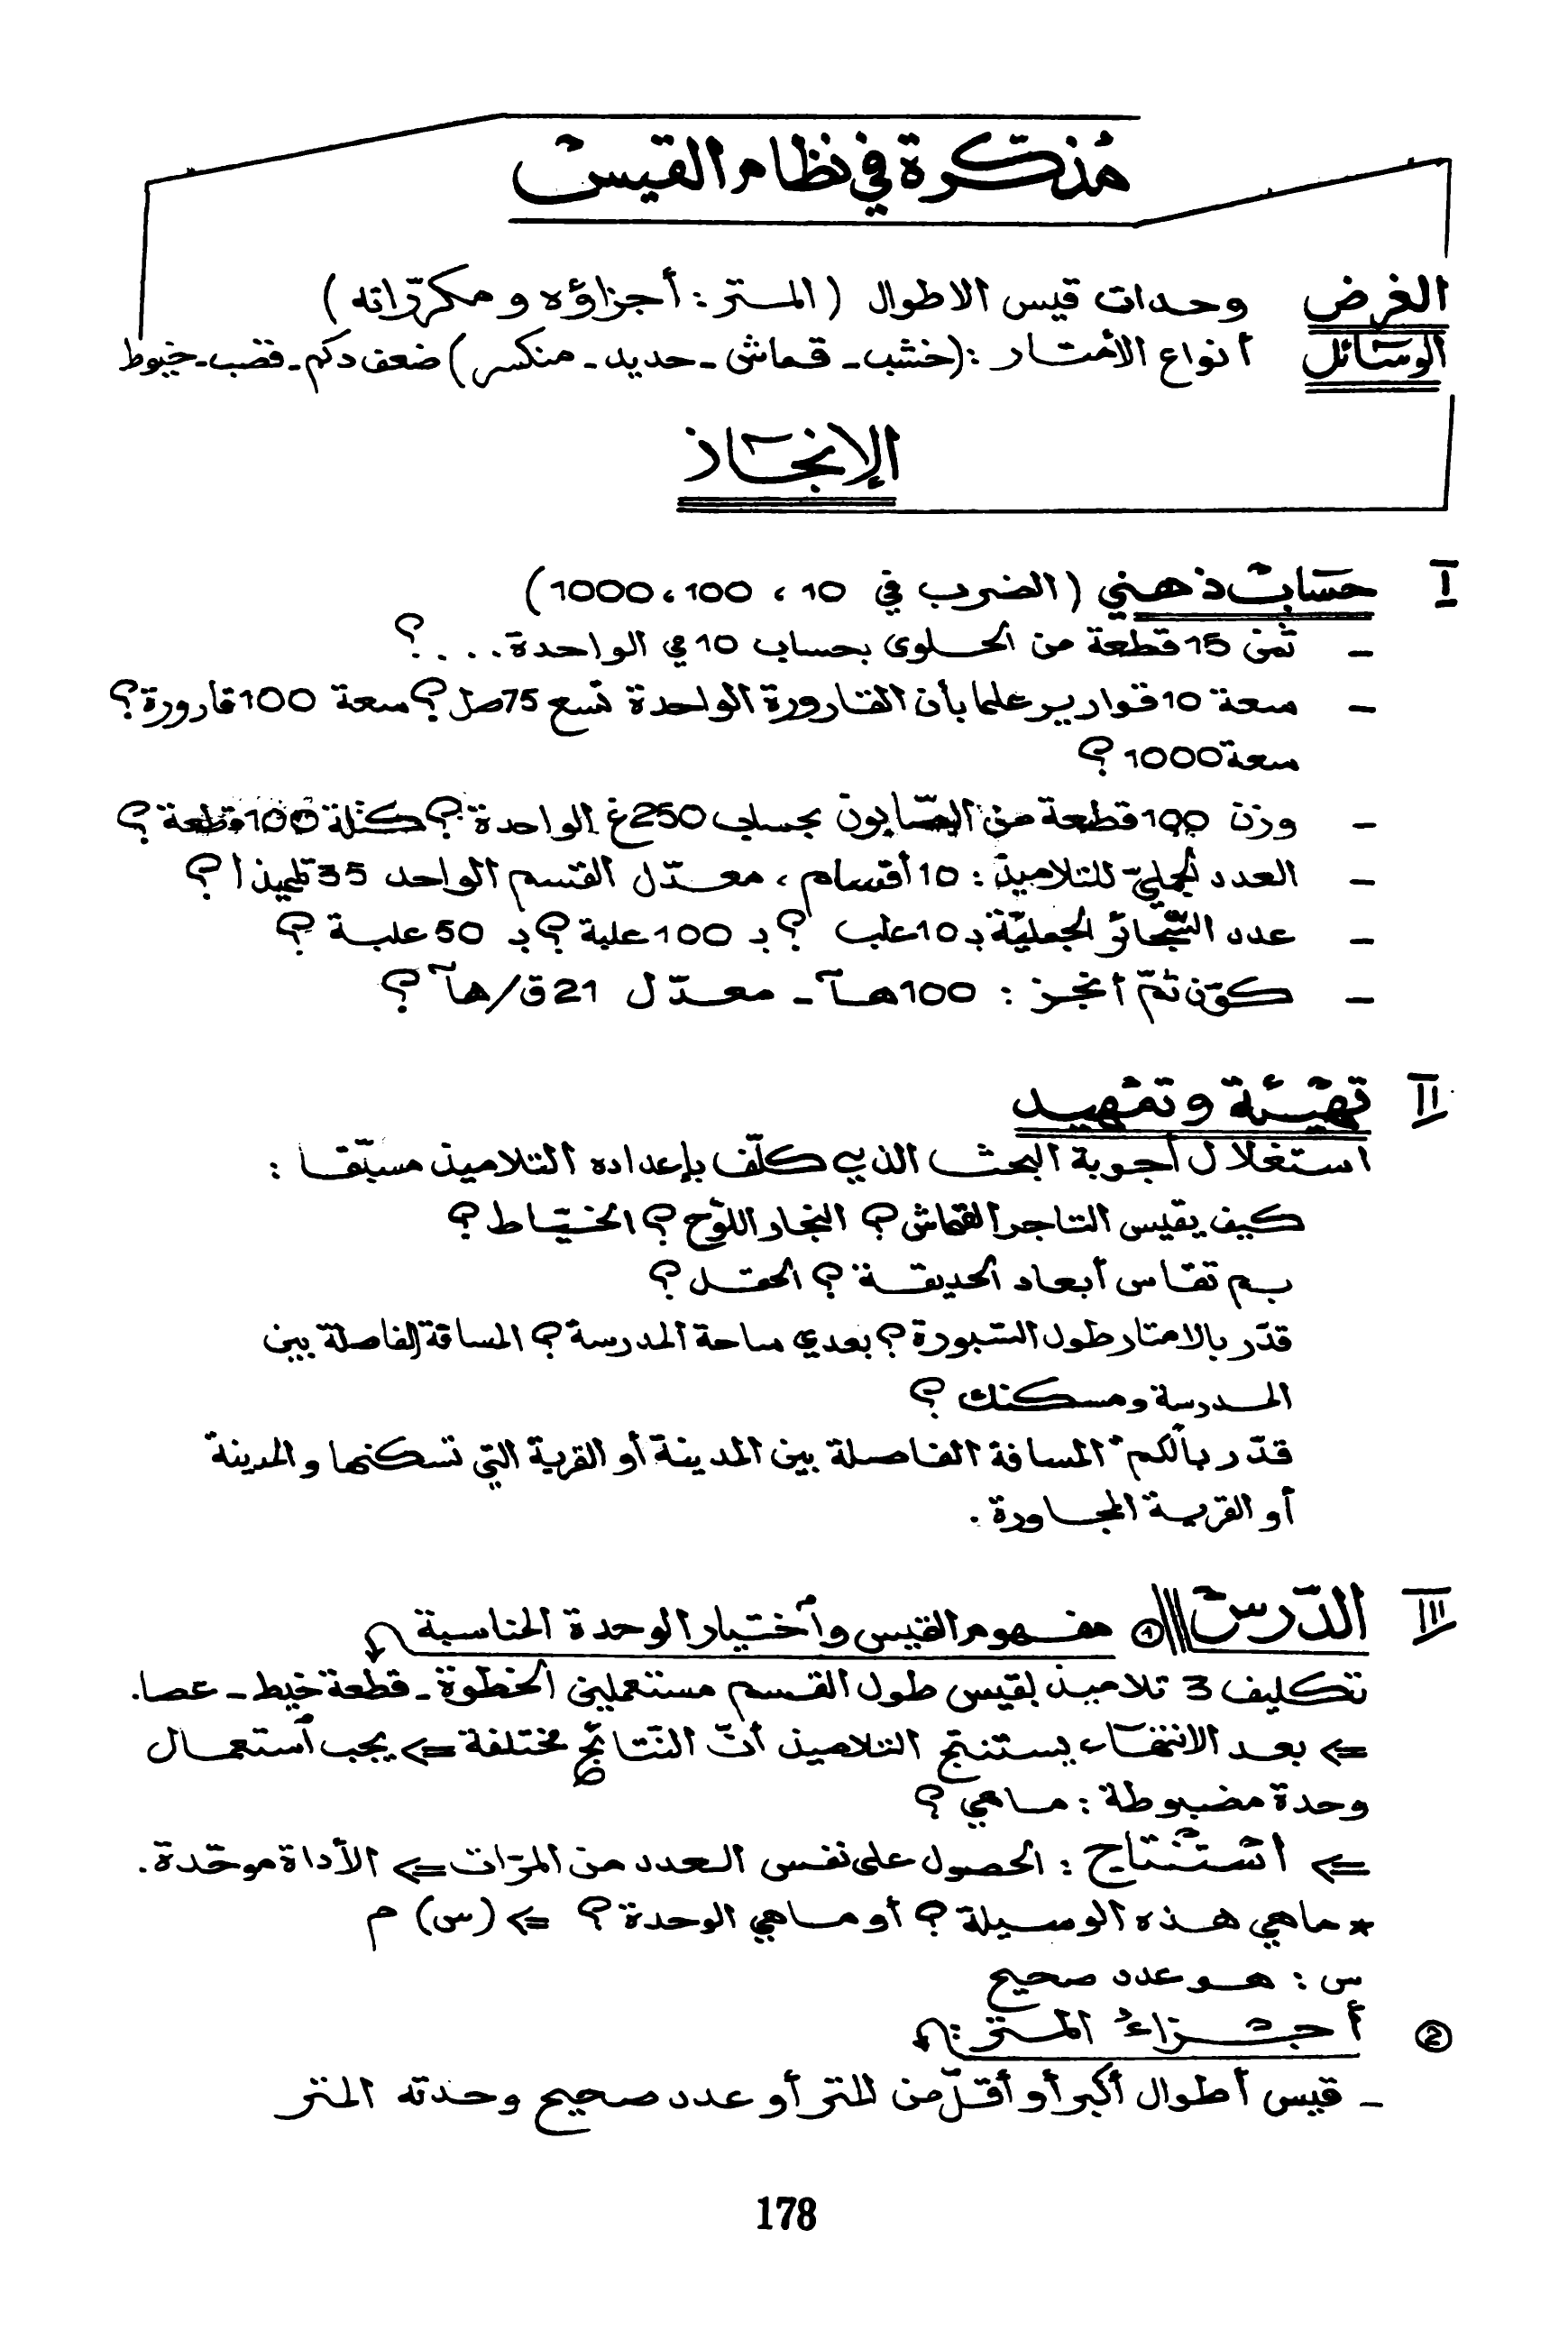 مُذكّرة في نظام القيس
الغرض وحدات قيس الاطوال (المتر : أجزاؤه و مكرّراته)
الوسائل أنواع الأمتار : (خشب - قماش - حديد - منكسر) ضعف دكم - قصب - خيوط
الإنجاز
I حساب ذهني (الضرب في 10 ، 100 ، 1000)
- ثمن 15 قطعة من الحلوى بحساب 10 مي الواحدة . . . . ؟
- سعة 10 قوارير علما بأن القارورة الواحدة تسع 75 صل ؟ سعة 100 قارورة ؟
سعة 1000 ؟
- وزن 100 قطعة من الصّابون بحساب 250 غ الواحدة ؟ كتلة 100 قطعة ؟
- العدد الجمليّ للتلاميذ : 10 أقسام ، معدّل القسم الواحد 35 تلميذا ؟
- عدد السّجائر الجمليّة بـ 10 علب ؟ بـ 100 علبة ؟ بـ 50 علبة ؟
- كوّن ثمّ أنجز : 100 هآ - معدّل 21 ق/هآ ؟
II تهيئة و تمهيد
استغلال أجوبة البحث الذي كلّف بإعداده التلاميذ مسبّقا :
كيف يقيس التاجر القماش ؟ النجار اللّوح ؟ الخيّاط ؟
بم تقاس أبعاد الحديقة ؟ الحقل ؟
قدّر بالامتار طول السّبورة ؟ بعدي ساحة المدرسة ؟ المسافة الفاصلة بين
المدرسة ومسكنك ؟
قدّر بالكم المسافة الفاصلة بين المدينة أو القرية التي تسكنها والمدينة
أو القرية المجاورة .
III الدّرس ① مفهوم القيس وٱختيار الوحدة المناسبة
تكليف 3 تلاميذ بقيس طول القسم مستعملين الخطوة - قطعة خيط - عصا.
<= بعد الانتهاء يستنتج التلاميذ أنّ النّتائج مختلفة <= يجب ٱستعمال
وحدة مضبوطة : ماهي ؟
<= استنتاج : الحصول على نفس العدد من المرّات <= الأداة موحّدة.
* ماهي هذه الوسيلة ؟ أو ماهي الوحدة ؟ <= (س) م
س : هو عدد صحيح
② أجزاءُ المتر :
- قيس أطوال أكبر أو أقلّ من المتر أو عدد صحيح وحدته المتر
178